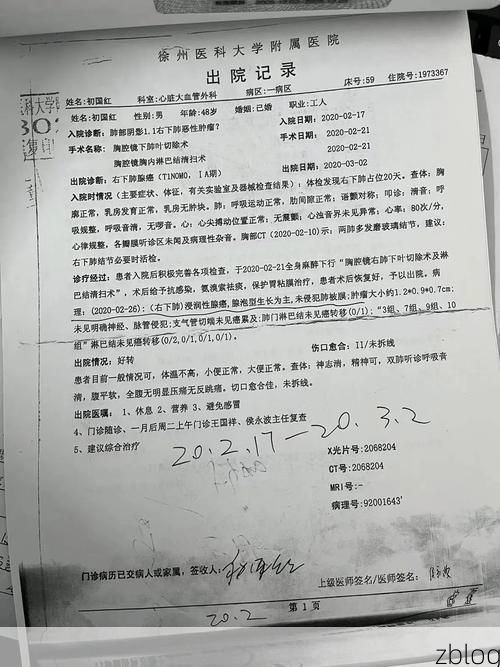 徐州医科大学附属医院
出院记录
科大学
姓名:初国红 科室:心脏大血管外科 病区:一病区 床号:59 住院号:1973367
姓名:初国红 性别:男 年龄:48岁 婚姻:已婚 职业:工人
入院诊断:肺部阴影1.1右下肺恶性肿瘤? 入院日期:2020-02-17
手术名称: 胸腔镜下肺叶切除术 手术日期:2020-02-21
胸腔镜胸内淋巴结清扫术 2020-02-21
出院诊断:右下肺腺癌(T1N0M0,ⅠA期) 出院日期:2020-03-02
入院时情况(主要症状、体征,有关实验室及器械检查结果):体检发现右下肺占位20天。查体:胸
廓正常,乳房发育正常,乳房无肿块。肺:呼吸运动正常,肋间隙正常;语颤对称;叩诊:清音;呼
吸规整,呼吸音清,无啰音。心:心尖搏动位置正常;无震颤;心浊音界未见异常;心率:80次/分,
心律规整,各瓣膜听诊区未闻及病理性杂音。胸部CT(2020-02-10)示:两肺多发磨玻璃结节,建议:
右下肺结节必要时活检。
诊疗经过:患者入院后积极完善各项检查,于2020-02-21全身麻醉下行“胸腔镜右肺下叶切除术及淋
巴结清扫术”,术后给予抗感染,氨溴索祛痰,保护胃粘膜治疗,患者术后恢复好,予以出院。病
理:(2020-02-26):(右下肺)浸润性腺癌,腺泡型生长为主,未侵犯肺被膜;肿瘤大小约1.2*0.9*0.7cm;
未见明确神经、脉管侵犯;支气管切端未见癌累及;肺门淋巴结未见癌转移(0/1);“3组、7组、9组、10
组”淋巴结未见癌转移(0/2,0/1,0/1,0/1)。
出院情况:好转 伤口愈合:II/未拆线
患者目前一般情况可,体温不高,小便正常,大便正常。查体:神志清,精神可,双肺听诊呼吸音
清,腹平软,全腹无明显压痛无反跳痛。切口愈合佳,未拆线。
出院医嘱: 1、休息 2、营养 3、避免感冒
4、门诊随诊、一月后周二上午门诊王国祥、侯永波主任复查
5、建议综合治疗
20.2.17—20.3.2
X光片号:2068204
CT号:2068204
MRI号:-
病理号:92001643'
门诊病历已交病人或家属,签收人: 上级医师签名/医师签名:
第 1 页
20.2
zblog